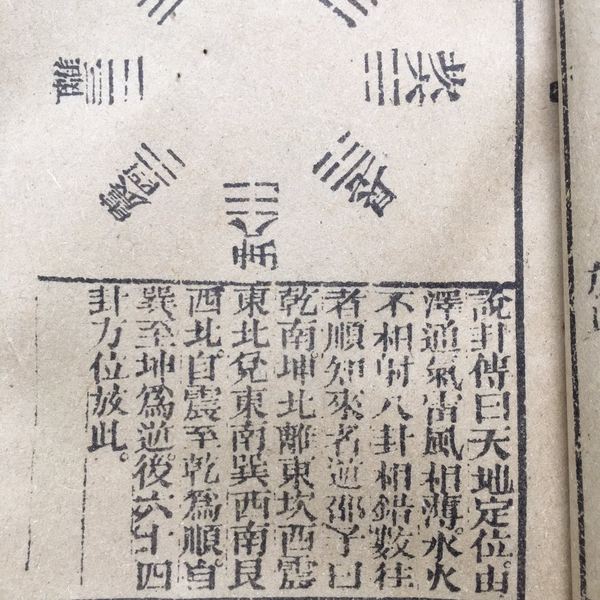 離三
震四
坤八
艮七
坎六
說卦傳曰天地定位山
澤通氣雷風相薄水火
不相射八卦相錯數往
者順知來者逆邵子曰
乾南坤北離東坎西震
東北兌東南巽西南艮
西北自震至乾為順自
巽至坤為逆後六十四
卦方位放此